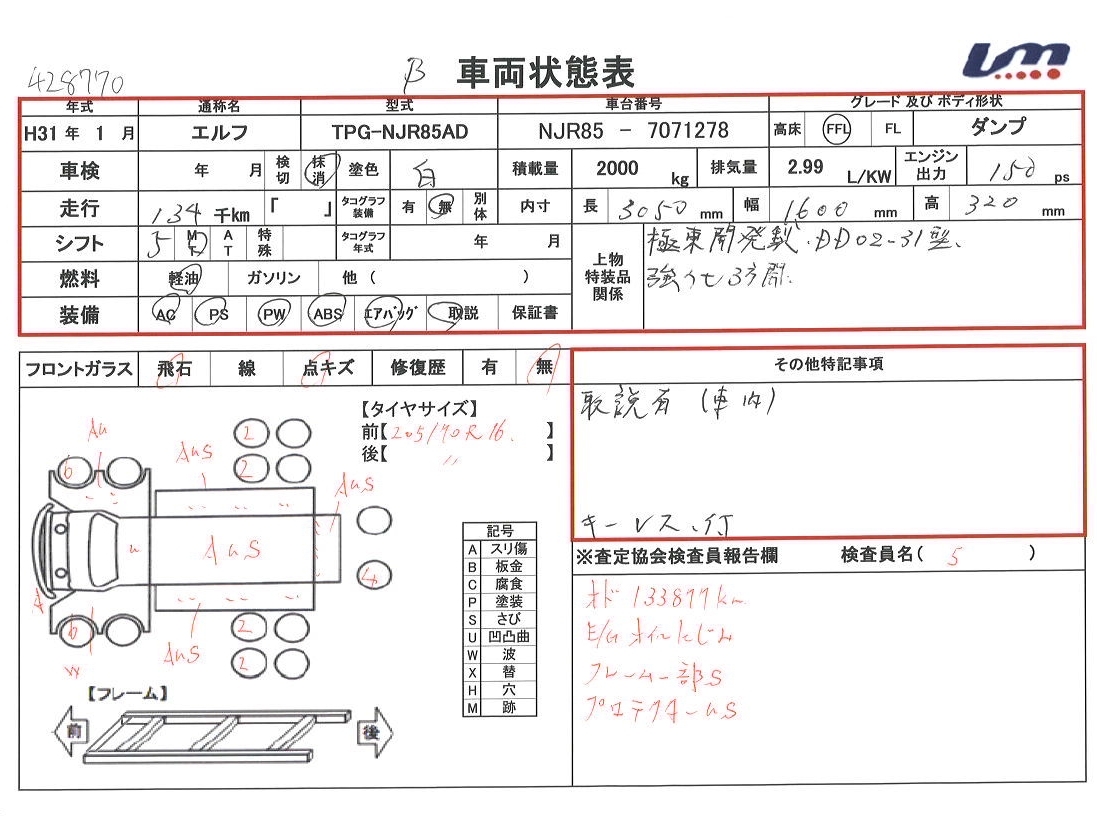 428770
B 車両状態表
um
年式 通称名 型式 車台番号 グレード 及び ボディ形状
H31 年 1 月 エルフ TPG-NJR85AD NJR85 － 7071278 高床 FFL FL ダンプ
車検 年 月 検切 抹消 塗色 白 積載量 2000 kg 排気量 2.99 L/KW エンジン出力 150 ps
走行 134 千km 「 」 タコグラフ装備 有 無 別体 内寸 長 3050 mm 幅 1600 mm 高 320 mm
シフト 5 MT AT 特殊 タコグラフ年式 年 月 上物特装品関係 極東開発製.DD02-31型、
強力セ3方開.
燃料 軽油 ガソリン 他 ( )
装備 AC PS PW ABS エアバッグ 取説 保証書
フロントガラス 飛石 線 点キズ 修復歴 有 無
その他特記事項
取説有 (車内)
キーレス、付
【タイヤサイズ】
前【205/70R16. 】
後【 〃 】
AU
AUS
AUS
AUS
AUS
u
A
W
6
6
2
2
4
2
2
記号
A スリ傷
B 板金
C 腐食
P 塗装
S さび
U 凹凸曲
W 波
X 替
H 穴
M 跡
【フレーム】
前 後
※査定協会検査員報告欄 検査員名( 5 )
オド 133877km
E/G オイルにじみ
フレーム一部S
プロテクターUS